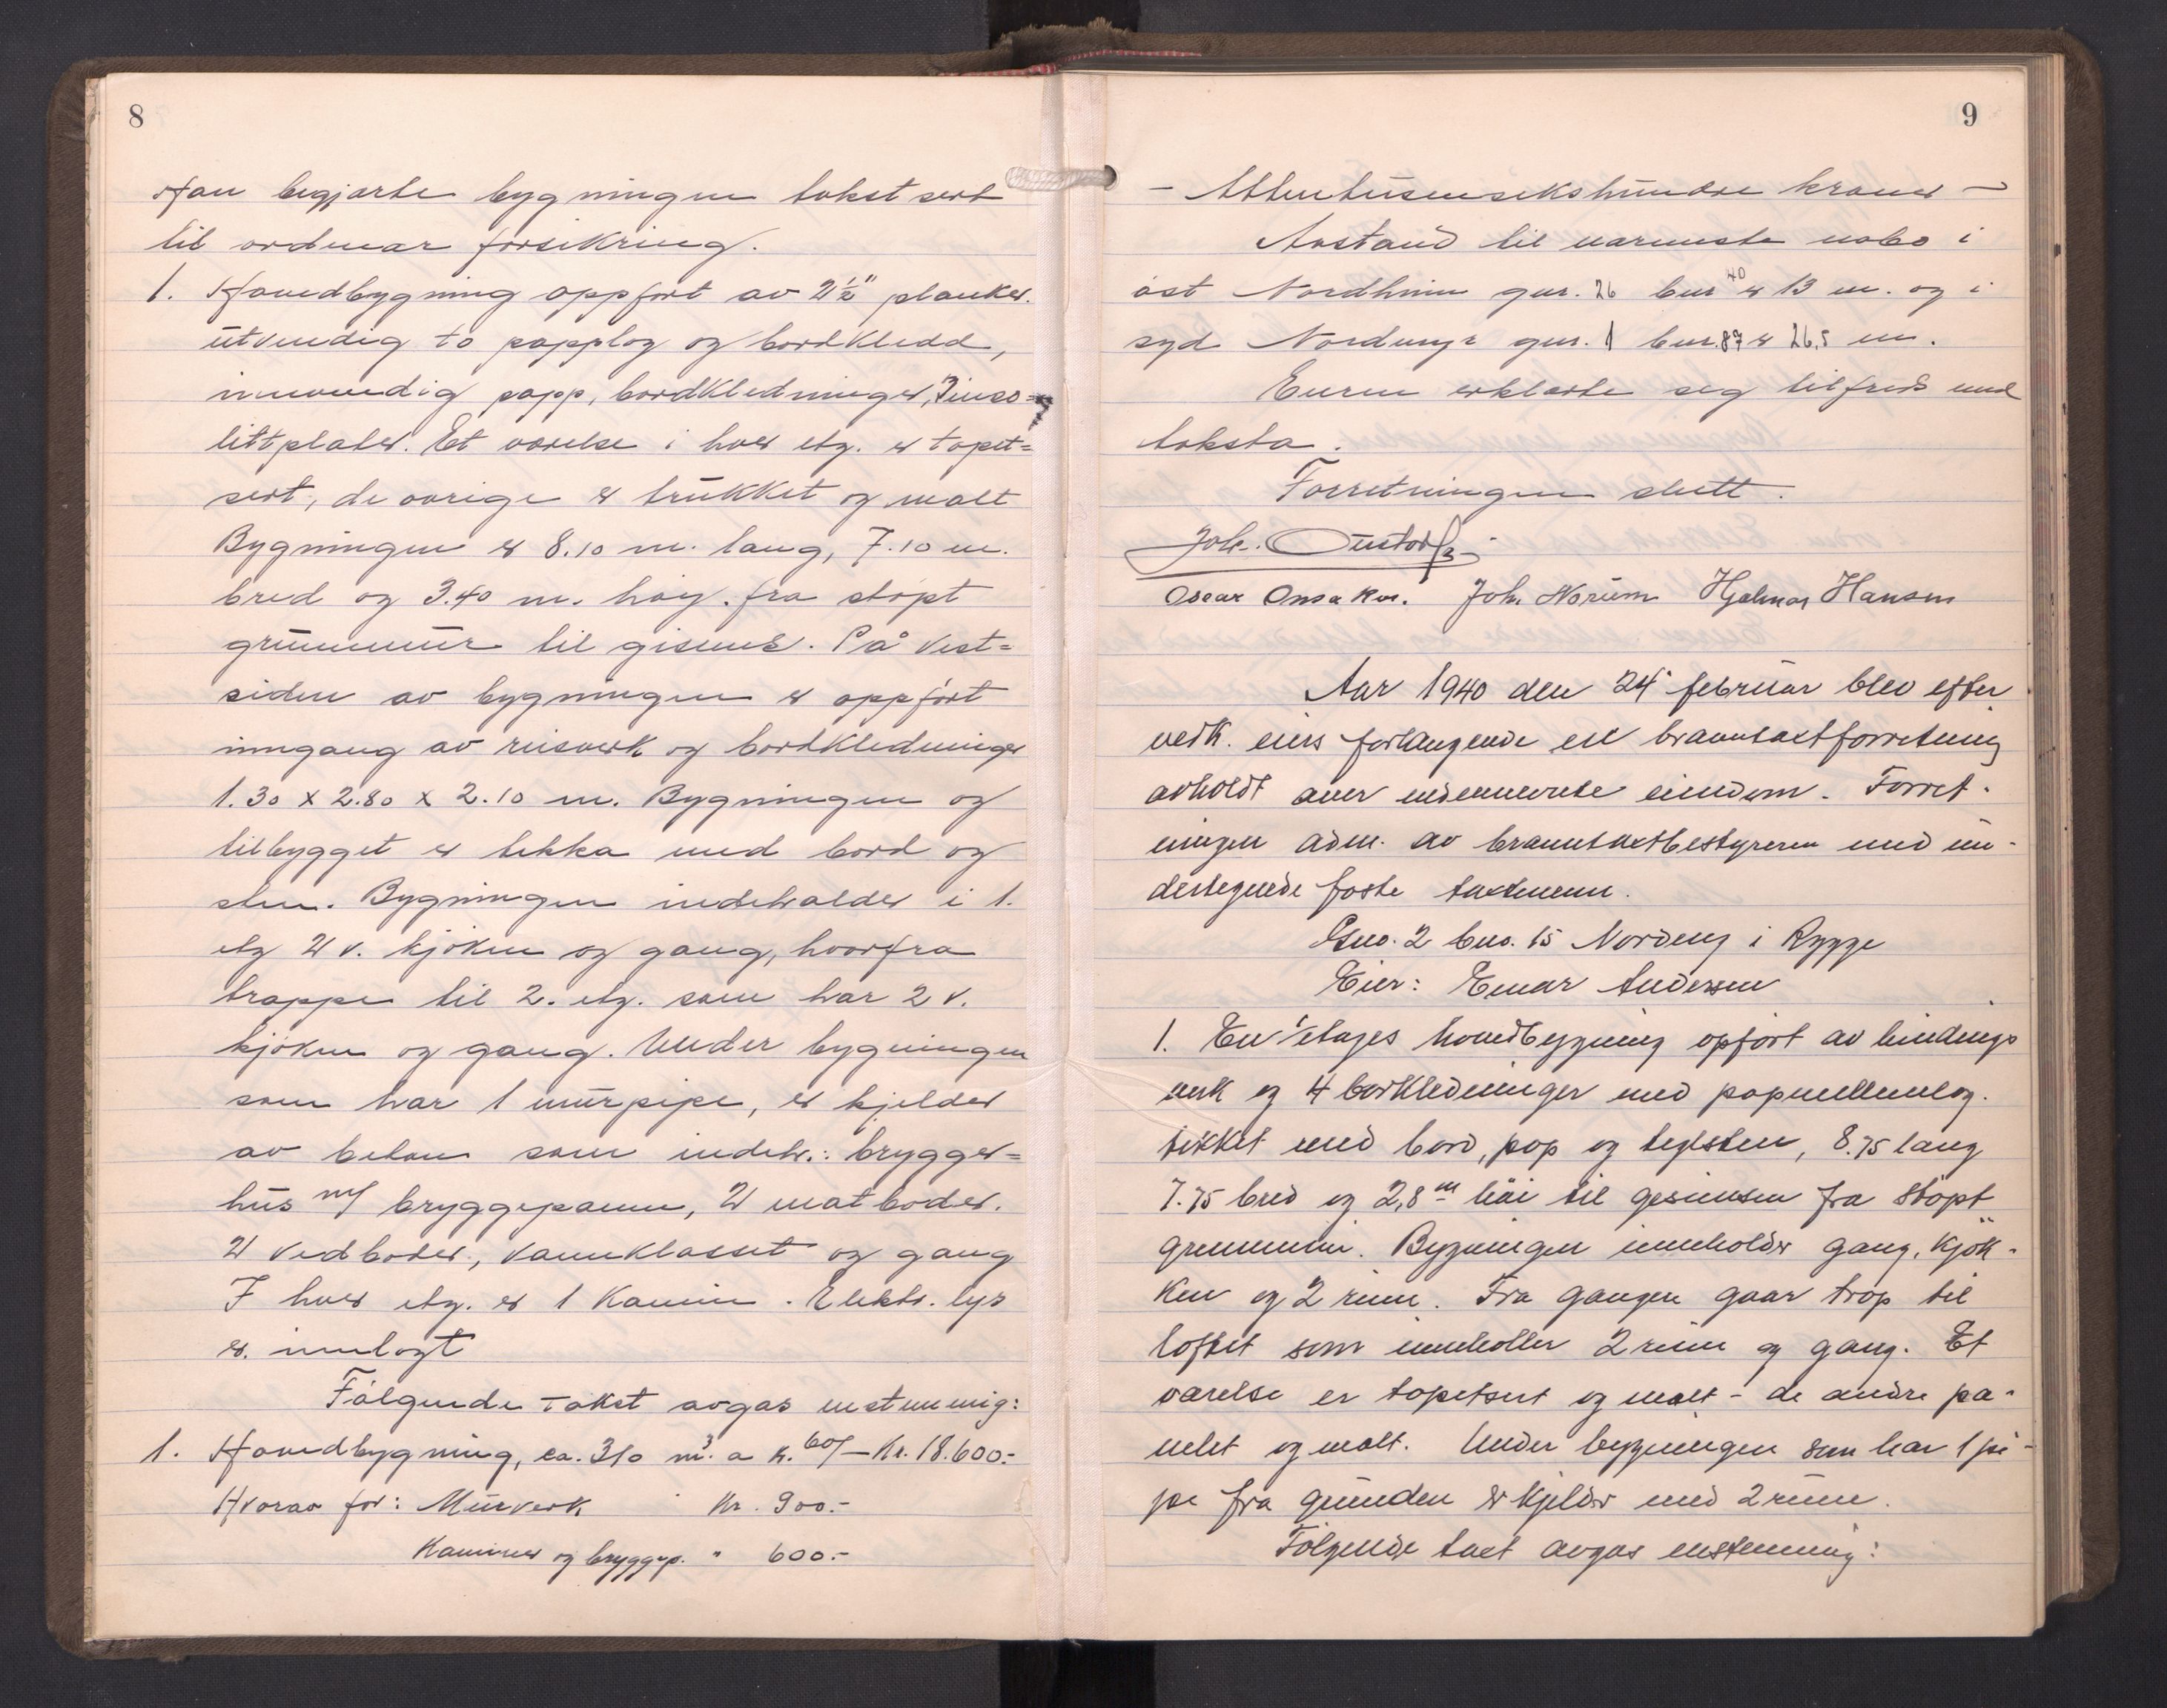 8
Han begjærte bygningen takstsert
til ordinær forsikring.
1. Hovedbygning oppført av 2½" planker.
utvendig to papplag og bordkledd,
innvendig papp, bordkledninger, 3 inso=
littplater. Et værelse i hver etg. er tapet=
sert, de øvrige er trukket og malt
Bygningen er 8.10 m. lang, 7.10 m.
bred og 3.40 m. høy. fra støpt
grunnmur til gisims. På Vest=
siden av bygningen er oppført
inngang av reisverk og bordkledninger
1.30 x 2.80 x 2.10 m. Bygningen og
tilbygget er tekka med bord og
sten. Bygningen indeholder i 1.
etg 2 v. kjøken og gang, hvorfra
trappe til 2. etg. som har 2 v.
kjøken og gang. Under bygningen
som har 1 murpipe, er kjelder
av betong som indeh.: brygger=
hus m/ bryggepanne, 2 matboder.
2 vedboder, vannklosset og gang
I hver etg. er 1 Kamin. Elektr. lys
er innlagt
Følgende takst avgas enstemmig:
1. Hovedbygning, ca. 310 m³. a kr. 60/- Kr. 18.600.-
Hvorav for: Murverk " Kr. 900.-
Kaminer og bryggep. " 600.-
9
- Attentusenseks­hundre kroner -
Avstand til nærmeste nabo i
øst Nordheim gnr. 26 bnr 40 er 13 m. og i
syd Nordmyr gnr. 1 bnr. 87 er 26,5 m.
Eieren erklærte seg tilfreds med
taksta.
Forretningen slutt.
Joh. Gustavs
Oscar Onsaker. Joh. Norum Hjalmar Hansen
Aar 1940 den 24 februar blev efter
vedk. eiers forlangende en branntaxtforretning
avholdt over nedennevnte eiendom. Forret-
ningen adm. av branntaxtbestyreren med un-
dertegnede faste taxtmenn.
Gno. 2 bno. 15 Nordeng i Rygge
Eier: Einar Andersen
1. En 1 etages hovedbygning opført av bindings
verk og 4 bordkledninger med papmellemlag.
tekket med bord, pap og teglsten, 8.75 lang
7.75 bred og 2,8 m høi til gesimsen fra støpt
grunnmur. Bygningen inneholder gang, kjøk-
ken og 2 rum. Fra gangen gaar trap til
loftet som inneholder 2 rum og gang. Et
værelse er tapetsert og malt - de andre pa-
nelet og malt. Under bygningen som har 1 pi-
pe fra grunden er kjelder med 2 rum.
Følgende taxt avgas enstemmig: